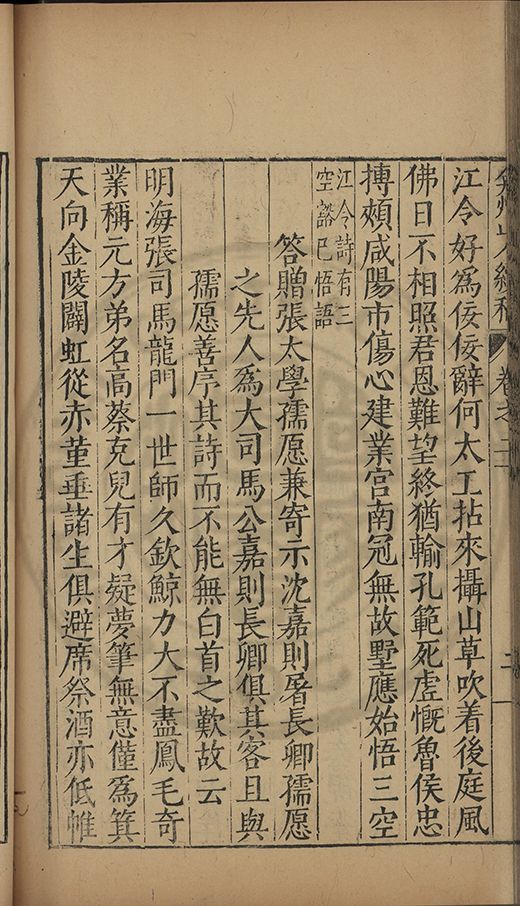 弇州山人續稿 卷之二 二
江令好爲佞佞辭何太工拈來攝山草吹着後庭風
佛日不相照君恩難望終猶輸孔範死虛慨魯侯忠
摶頰咸陽市傷心建業宮南冠無故墅應始悟三空
江令詩有三
空豁已悟語
答贈張太學孺愿兼寄示沈嘉則屠長卿孺愿
之先人爲大司馬公嘉則長卿俱其客且與
孺愿善序其詩而不能無白首之歎故云
明海張司馬龍門一世師久欽鯨力大不盡鳳毛奇
業稱元方弟名高蔡克兒有才疑夢筆無意僅爲箕
天向金陵闢虹從赤堇垂諸生俱避席祭酒亦低帷